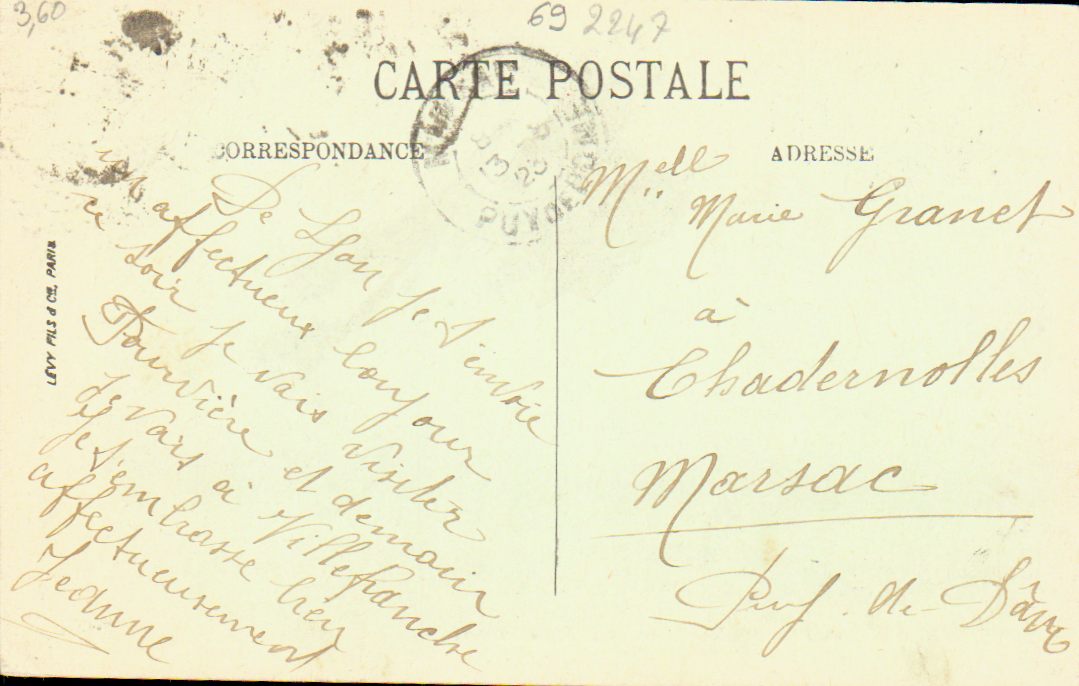 3,60
69 2247
CARTE POSTALE
CORRESPONDANCE
ADRESSE
LÉVY FILS & Cie, PARIS
De Lyon je t'envoie
un affectueux bonjour
ce soir je vais visiter
Fourvière et demain
je vais à Villefranche
je t'embrasse bien
affectueusement
Jeanne
Mell
Marie Granet
à
Chadernolles
Marsac
Puy-de-Dôme
PUY-DE-DOME